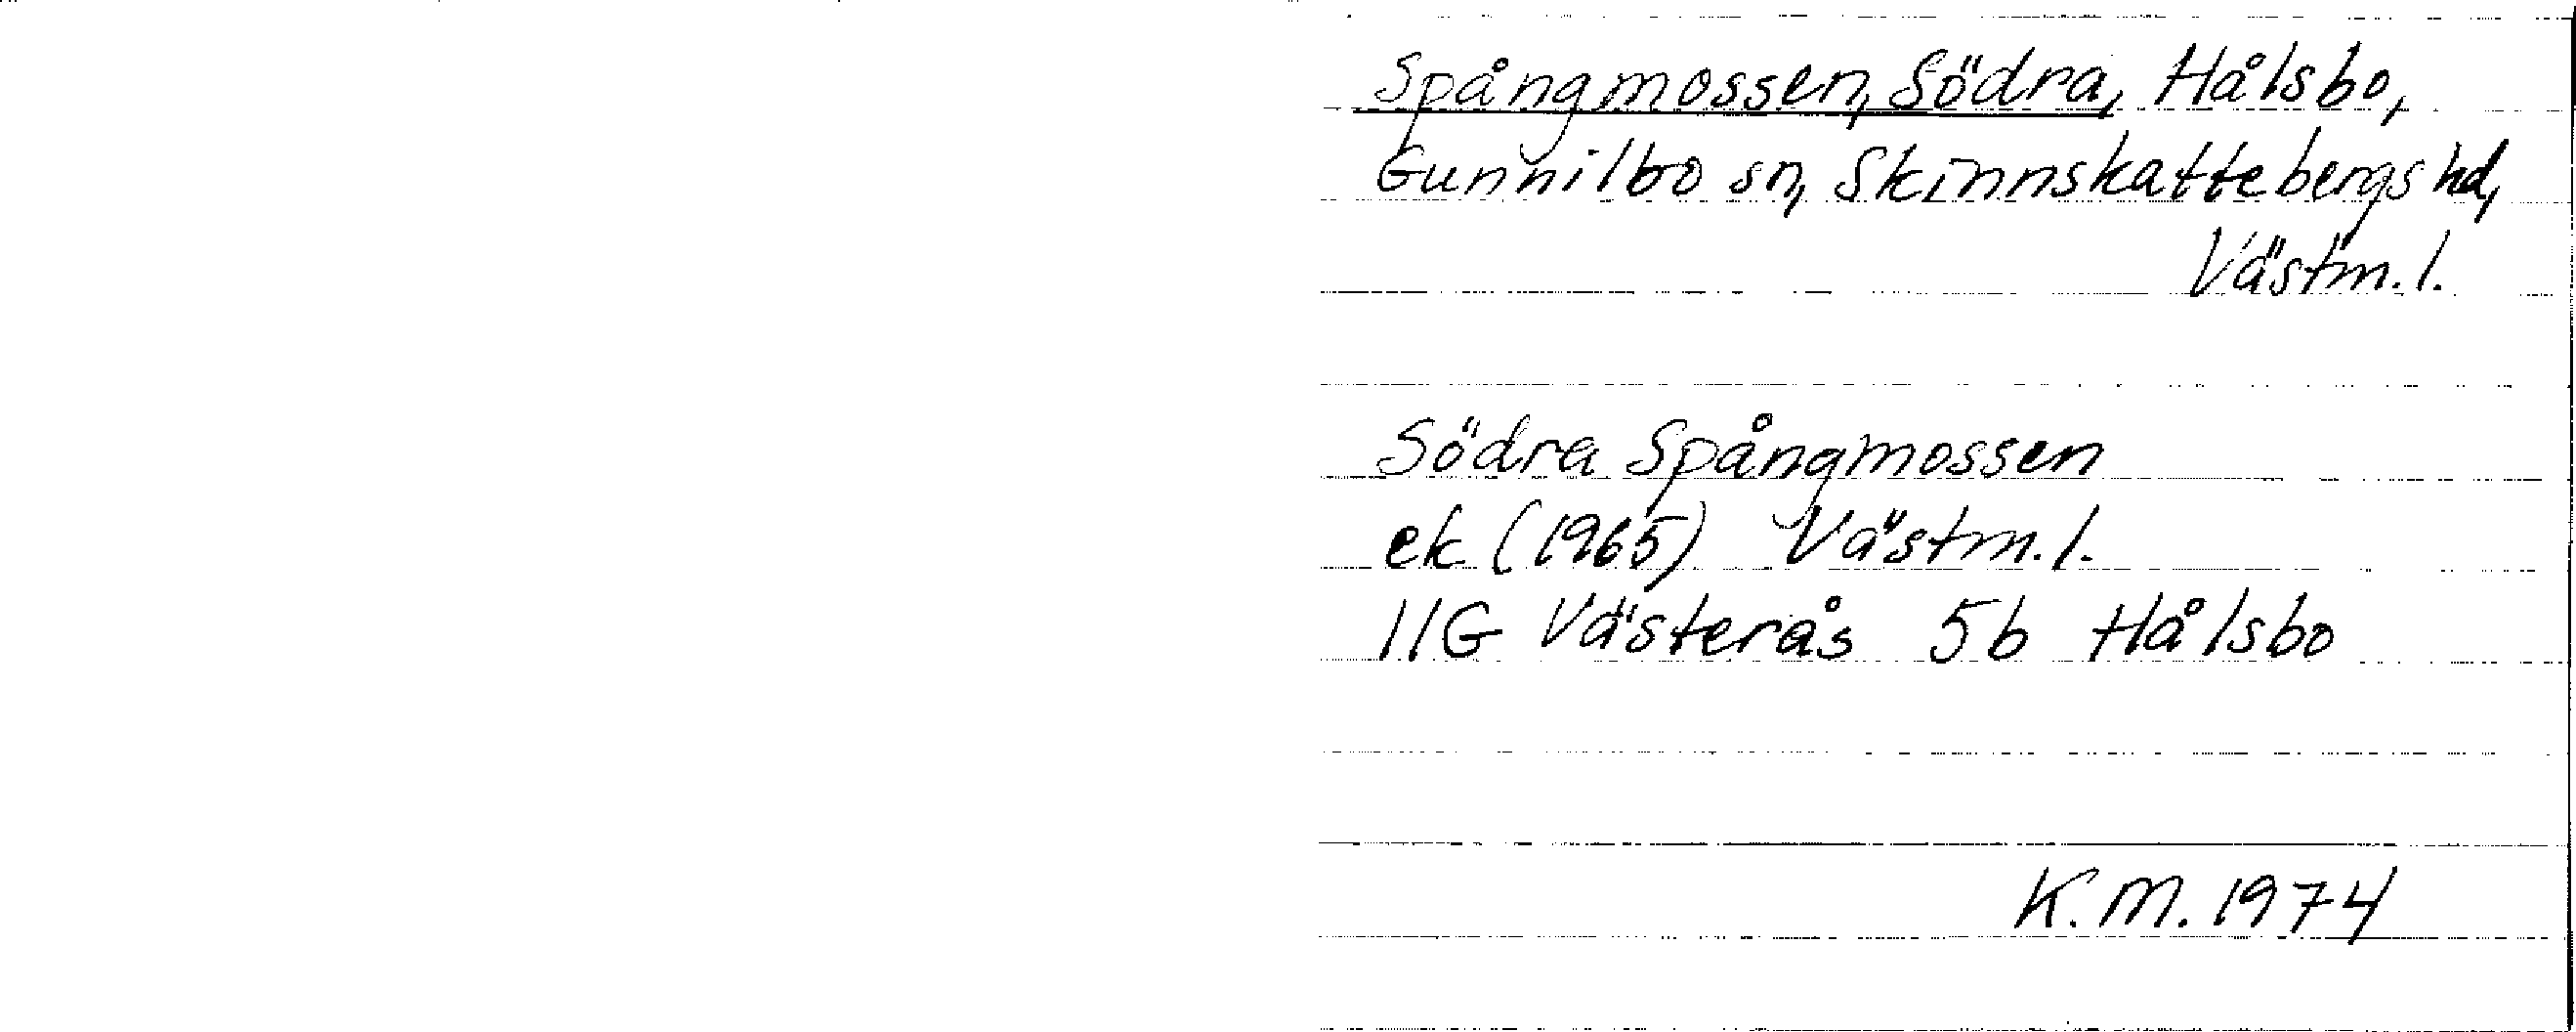 Spångmossen, Södra, Hålsbo,
Gunnilbo sn, Skinnskattebergs hd,
Västm.l.
Södra Spångmossen
ek (1965) Västm.l.
11G Västerås 5b Hålsbo
K.M. 1974